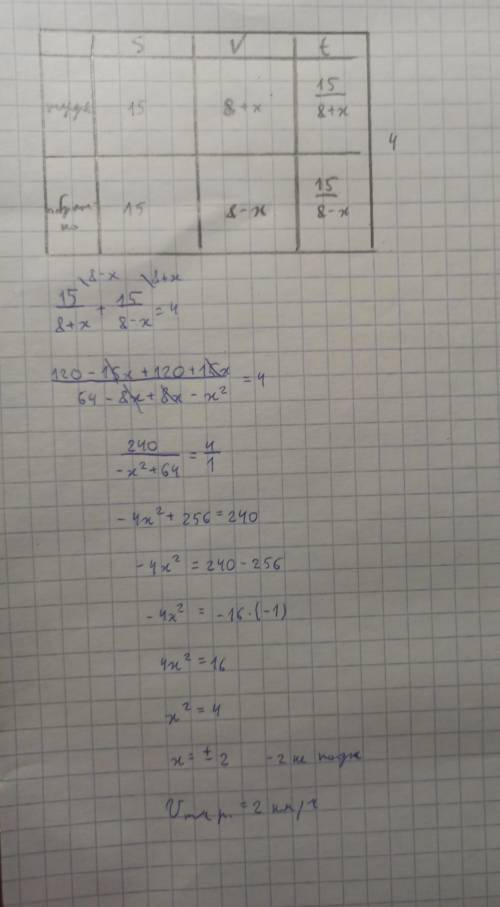 S V t
туда 15 8+x 15/(8+x)
4
обратно 15 8-x 15/(8-x)
8-x 8+x
15/(8+x) + 15/(8-x) = 4
(120-15x+120+15x)/(64-8x+8x-x²) = 4
240/(-x²+64) = 4/1
-4x²+256=240
-4x²=240-256
-4x²=-16·(-1)
4x²=16
x²=4
x=±2 -2 не подх
V =2 км/ч